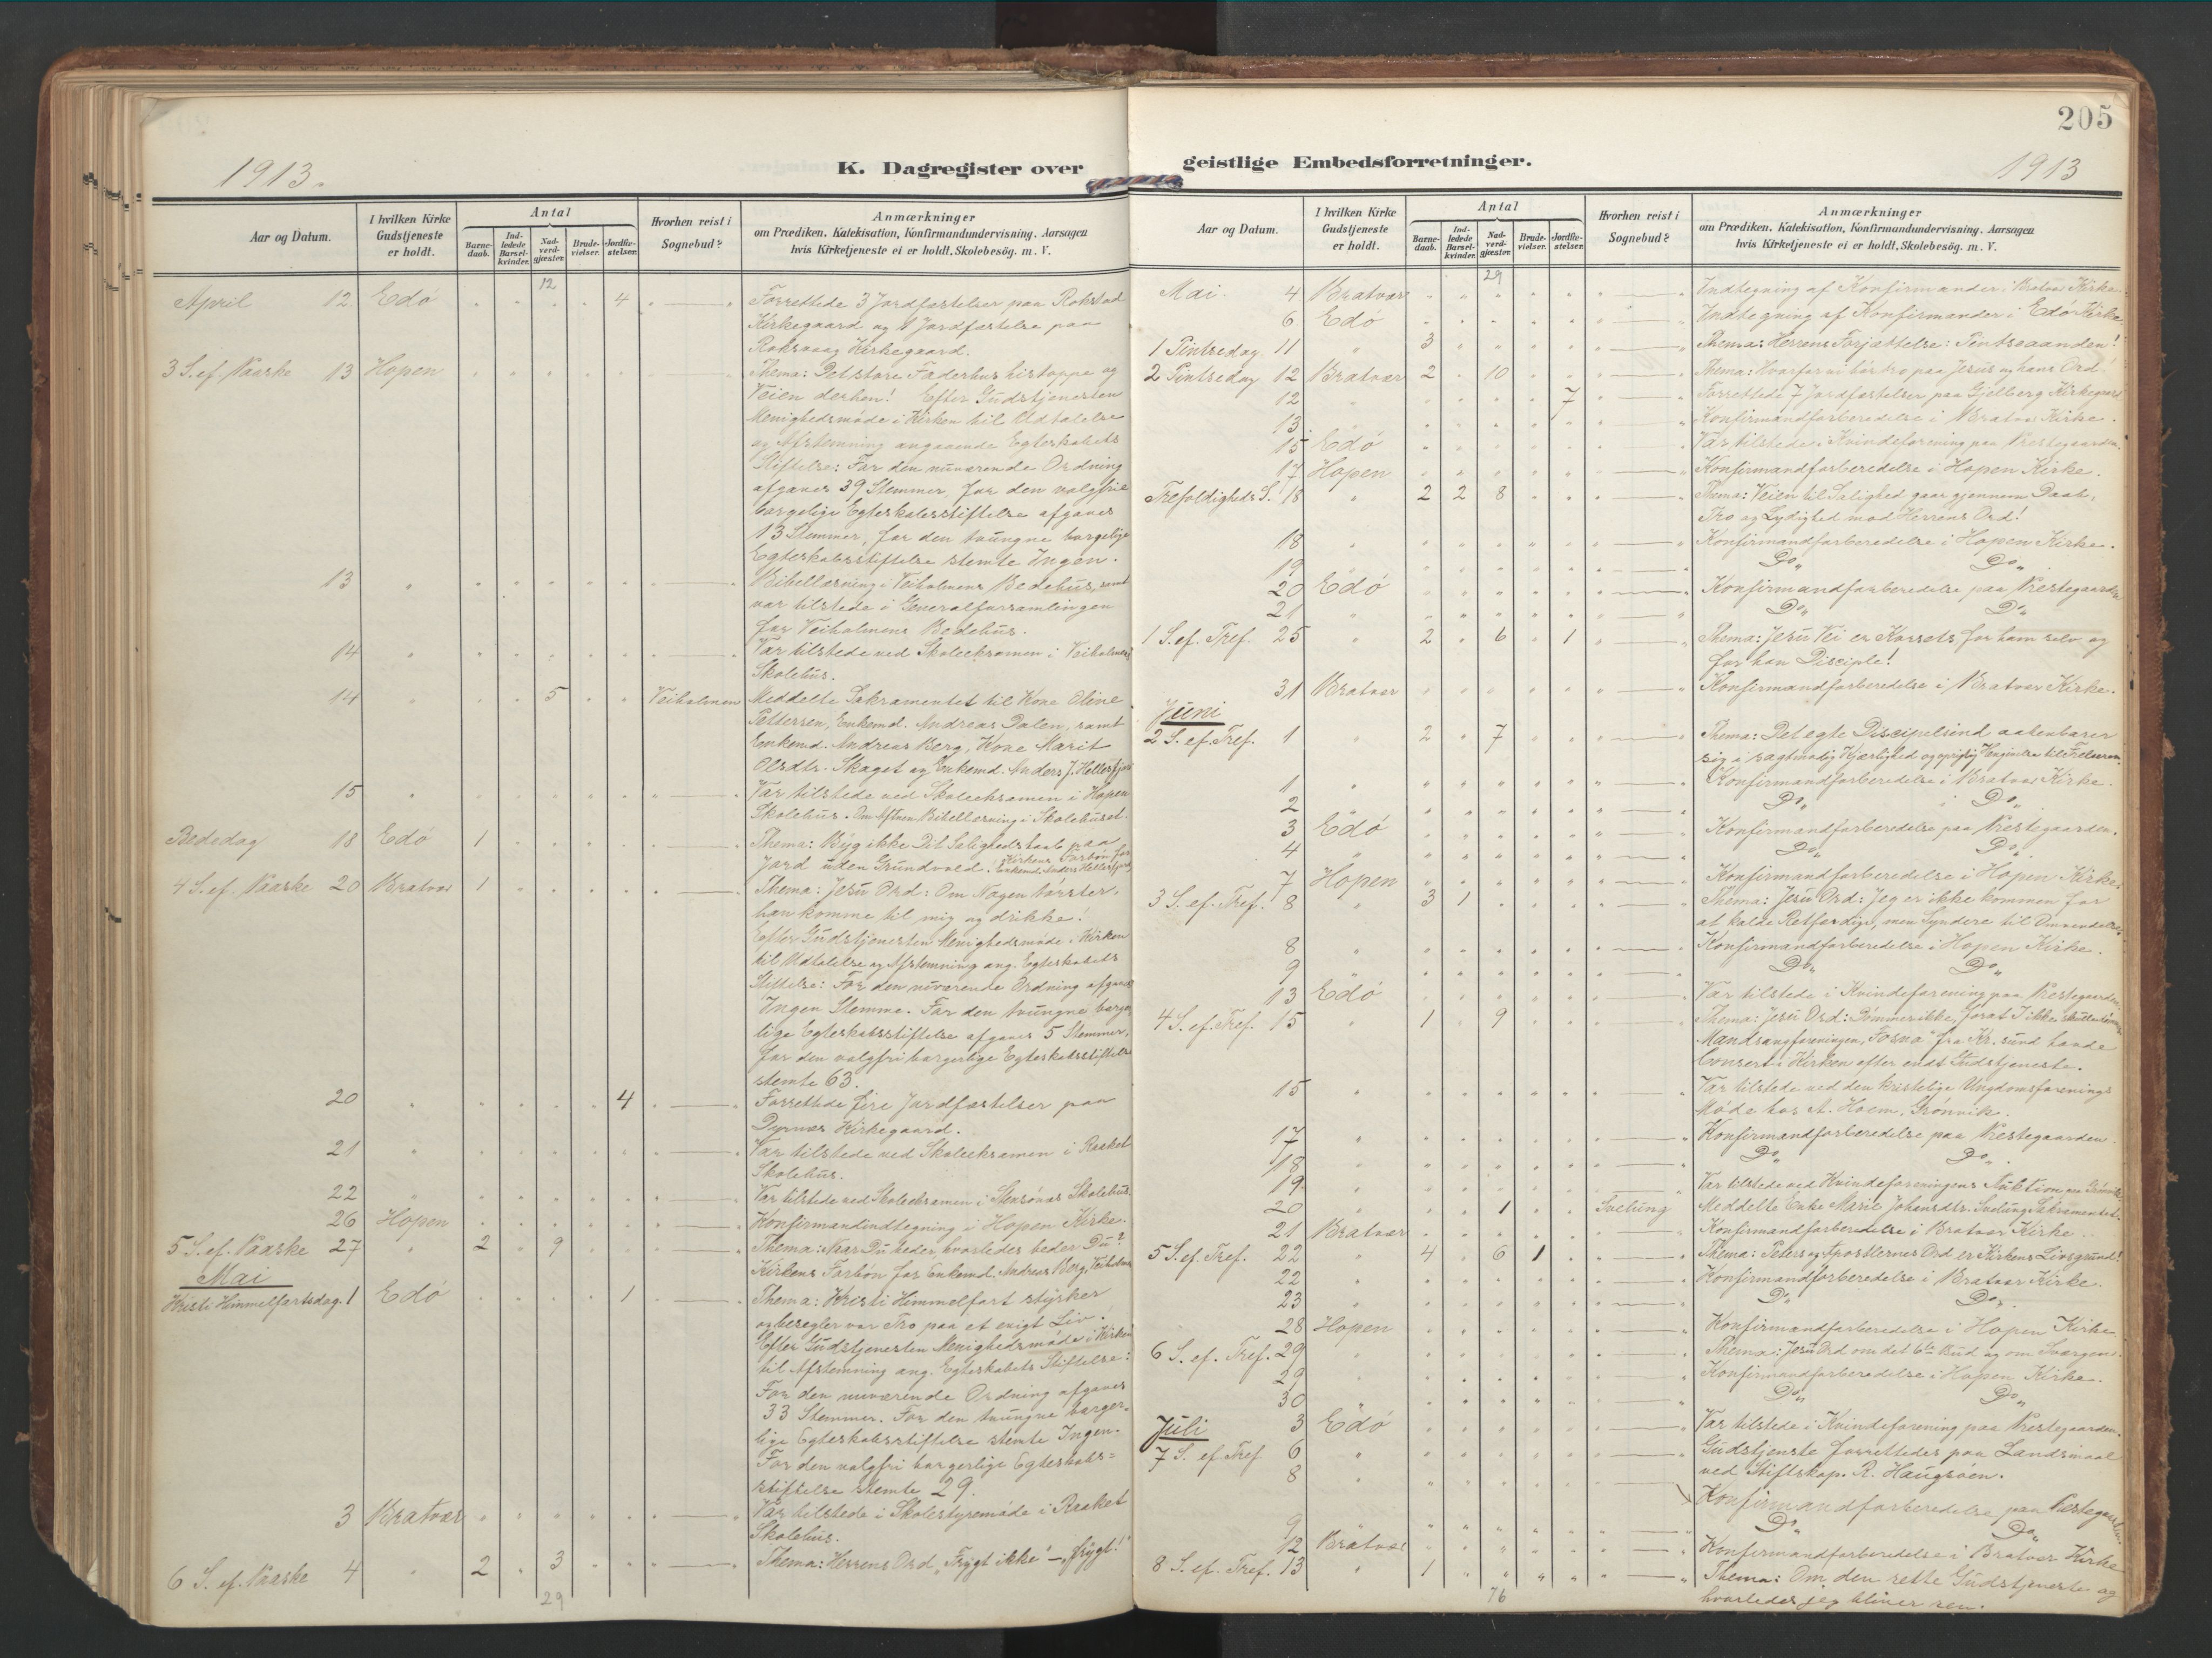 205
1913.
K. Dagregister over
geistlige Embedsforretninger.
1913
Aar og Datum.
I hvilken Kirke Gudstjeneste er holdt.
Antal
Barnedaab.
Indledede Barselkvinder.
Nadverdgjæster.
Brudevielser.
Jordfæstelser.
Hvorhen reist i Sognebud?
Anmærkninger
om Prædiken. Katekisation, Konfirmandundervisning. Aarsagen
hvis Kirketjeneste ei er holdt. Skolebesög. m. V.
12
April 12. Edö " " " " 4 " — " Forrettede 3 Jordfæstelser paa Rokstad
Kirkegaard og 1 Jordfæstelse paa
Roksvaag Kirkegaard.
3 S. ef. Paaske 13 Hopen " " " " " " — " Thema: Det store Faderhus histoppe og
Veien derhen! Efter Gudstjenesten
Menighedsmöde i Kirken til Udtalelse
og Afstemning angaaende Egteskabets
Stiftelse: For den nuværende Ordning
afgaves 39 Stemmer, for den valgfrie
borgelige Egteskabsstiftelse afgaves
13 Stemmer, for den tvungne borgelige
Egteskabsstiftelse stemte Ingen.
13 " " " " " " " — " Bibellæsning i Veiholmens Bedehus, samt
var tilstede i Generalforsamlingen
for Veiholmens Bedehus.
14 " " " " " " " — " Var tilstede ved Skoleeksamen i Veiholmens
Skolehus.
14 " " " 5 " " Veiholmen Meddelte Sakramentet til Kone Oline
Pettersen, Enkemd. Andreas Dalen, samt
Enkemd. Andreas Berg, Kone Marit
Olsdtr. Skaget og Enkemd. Anders J. Hellesfjord
15 " " " " " " " — " Var tilstede ved Skoleeksamen i Hopen
Skolehus. Om Aftnen Bibellæsning i Skolehuset.
Bededag 18 Edö 1 " " " " " — " Thema: Byg ikke Dit Salighedshaab paa
Jord uden Grundvold! Kirkens Forbön for
Enkemd. Anders Hellesfjord
4 S. ef. Paaske 20 Bratvær 1 " " " " " — " Thema: Jesu Ord: Om Nogen törster,
han komme til mig og drikke!
Efter Gudstjenesten Menighedsmöde i Kirken
til Udtalelse og Afstemning ang. Egteskabets
Stiftelse: For den nuværende Ordning afgaves
Ingen Stemme. For den tvungne borger-
lige Egteskabsstiftelse afgaves 5 Stemmer,
for den valgfri borgerlige Egteskabsstiftelse
stemte 63.
20 " " " " " 4 " — " Forrettede fire Jordfæstelser paa
Dyrnæs Kirkegaard.
21 " " " " " " " — " Var tilstede ved Skoleeksamen i Raaket
Skolehus.
22 " " " " " " " — " Var tilstede ved Skoleeksamen i Stensönæs Skolehus.
26 Hopen " " " " " " — " Konfirmandindtegning i Hopen Kirke.
5 S. ef. Paaske 27 " 2 " 9 " " " — " Thema: Naar Du beder, hvorledes beder Du?
Kirkens Forbön for Enkemd. Andreas Berg, Veiholmen
Mai
Kristi Himmelfartsdag. 1 Edö " " " " 1 " — " Thema: Kristi Himmelfart styrker
og besegler vor Tro paa et evigt Liv!
Efter Gudstjenesten Menighedsmöde i Kirken
til Afstemning ang. Egteskabets Stiftelse:
For den nuværende Ordning afgaves
33 Stemmer. For den tvungne borger-
lige Egteskabsstiftelse stemte Ingen.
For den valgfri borgerlige Egteskabs-
stiftelse stemte 29.
3 Bratvær " " " " " " — " Var tilstede i Skolestyremöde i Raaket
Skolehus.
6 S. ef. Paaske 4 " 2 " 3 " " " — " Thema: Herrens Ord "Frygt ikke" — "frygt!"
29
Aar og Datum.
I hvilken Kirke Gudstjeneste er holdt.
Antal
Barnedaab.
Indledede Barselkvinder.
Nadverdgjæster.
Brudevielser.
Jordfæstelser.
Hvorhen reist i Sognebud?
Anmærkninger
om Prædiken. Katekisation, Konfirmandundervisning. Aarsagen
hvis Kirketjeneste ei er holdt. Skolebesög. m. V.
29
Mai. 4 Bratvær " " " " " " — " Indtegning af Konfirmander i Bratvær Kirke.
6 Edö " " " " " " — " Indtegning af Konfirmander i Edö Kirke.
1 Pintsedag 11 " 3 " " " " " — " Thema: Herrens Forjættelse: Pintseaanden!
2 Pintsedag 12 Bratvær 2 " 10 " " " — " Thema: Hvorfor vi bör tro paa Jesus og hans Ord!
12 " " " " " 7 " — " Forrettede 7 Jordfæstelser paa Gjelberg Kirkegaard
13 " " " " " " " — " Konfirmandforberedelse i Bratvær Kirke.
15 Edö " " " " " " — " Var tilstede i Kvindeforening paa Prestegaarden.
17 Hopen " " " " " " — " Konfirmandforberedelse i Hopen Kirke.
Trefoldigheds S. 18 " 2 2 8 " " " — " Thema: Veien til Salighed gaar gjennem Daab,
Tro og Lydighed mod Herrens Ord!
18 " " " " " " " — " Konfirmandforberedelse i Hopen Kirke.
19 " " " " " " " — " Do Do
20 Edö " " " " " " — " Konfirmandforberedelse paa Prestegaarden
21 " " " " " " " — " Do Do
1 S. ef. Tref. 25 " 2 " 6 " 1 " — " Thema: Jesu Vei er Korsets for ham selv og
for han Disciple!
31 Bratvær " " " " " " — " Konfirmandforberedelse i Bratvær Kirke.
Juni
2 S. ef. Tref. 1 " 2 " 7 " " " — " Thema: Det egte Discipelsind aabenbarer
sig i sagtmodig Kjærlighed og oprigtig Hengivelse til Frelseren.
1 " " " " " " " — " Konfirmandforberedelse i Bratvær Kirke.
2 " " " " " " " — " Do i Do
3 Edö " " " " " " — " Konfirmandforberedelse paa Prestegaarden.
4 " " " " " " " — " Do Do
7 Hopen " " " " " " — " Konfirmandforberedelse i Hopen Kirke
3 S. ef. Tref. 8 " 3 1 " " " " — " Thema: Jesu Ord: Jeg er ikke kommen for
at kalde Retfærdige, men Syndere til Omvendelse.
8 " " " " " " " — " Konfirmandforberedelse i Hopen Kirke.
9 " " " " " " " — " Do Do
13 Edö " " " " " " — " Var tilstede i Kvindeforening paa Prestegaarden.
4 S. ef. Tref. 15 " 1 " 9 " " " — " Thema: Jesu Ord: Dömmer ikke, forat I ikke skulle dömmes
Mandsangforeningen "Fosna" fra Kr.sund havde
Consert i Kirken efter endt Gudstjeneste.
15 " " " " " " " — " Var tilstede ved den kristelige Ungdomsforenings
Möde hos A. Hoem, Grönnvik.
17 " " " " " " " — " Konfirmandforberedelse paa Prestegaarden.
18 " " " " " " " — " Do Do
19 " " " " " " " — " Var tilstede ved Kvindeforeningens Auktion paa
20 " " " 1 " " Svelung Meddelte Enke Marit Johansdtr. Svelung Sakramentet.
21 Bratvær " " " " " " — " Konfirmandforberedelse i Bratvær Kirke.
5 S. ef. Tref. 22 " 4 " 6 1 " " — " Thema: Peters og Apostlernes Ord er Kirkens Livsgrund!
22 " " " " " " " — " Konfirmandforberedelse i Bratvær Kirke.
23 " " " " " " " — " Do Do
28 Hopen " " " " " " — " Konfirmandforberedelse i Hopen Kirke
6 S. ef. Tref. 29 " " " " " " " — " Thema: Jesu Ord om det 6te Bud og om Sværgen.
29 " " " " " " " — " Konfirmandforberedelse i Hopen Kirke.
30 " " " " " " " — " Do Do
Juli 3 Edö " " " " " " — " Var tilstede i Kvindeforening paa Prestegaarden.
7 S. ef Tref 6 " " " " " " " — " Gudstjenste forrettedes paa Landsmaal
ved Stiftskap. R. Haugsöen.
8 " " " " " " " — " Konfirmandforberedelse paa Prestegaarden.
9 " " " " " " " — " Do Do
12 Bratvær " " " " " " — " Konfirmandforberedelse i Bratvær Kirke
8 S. ef. Tref. 13 " 1 " " " " " — " Thema: Om den rette Gudstjeneste og
hvorledes jeg bliver ren.
76